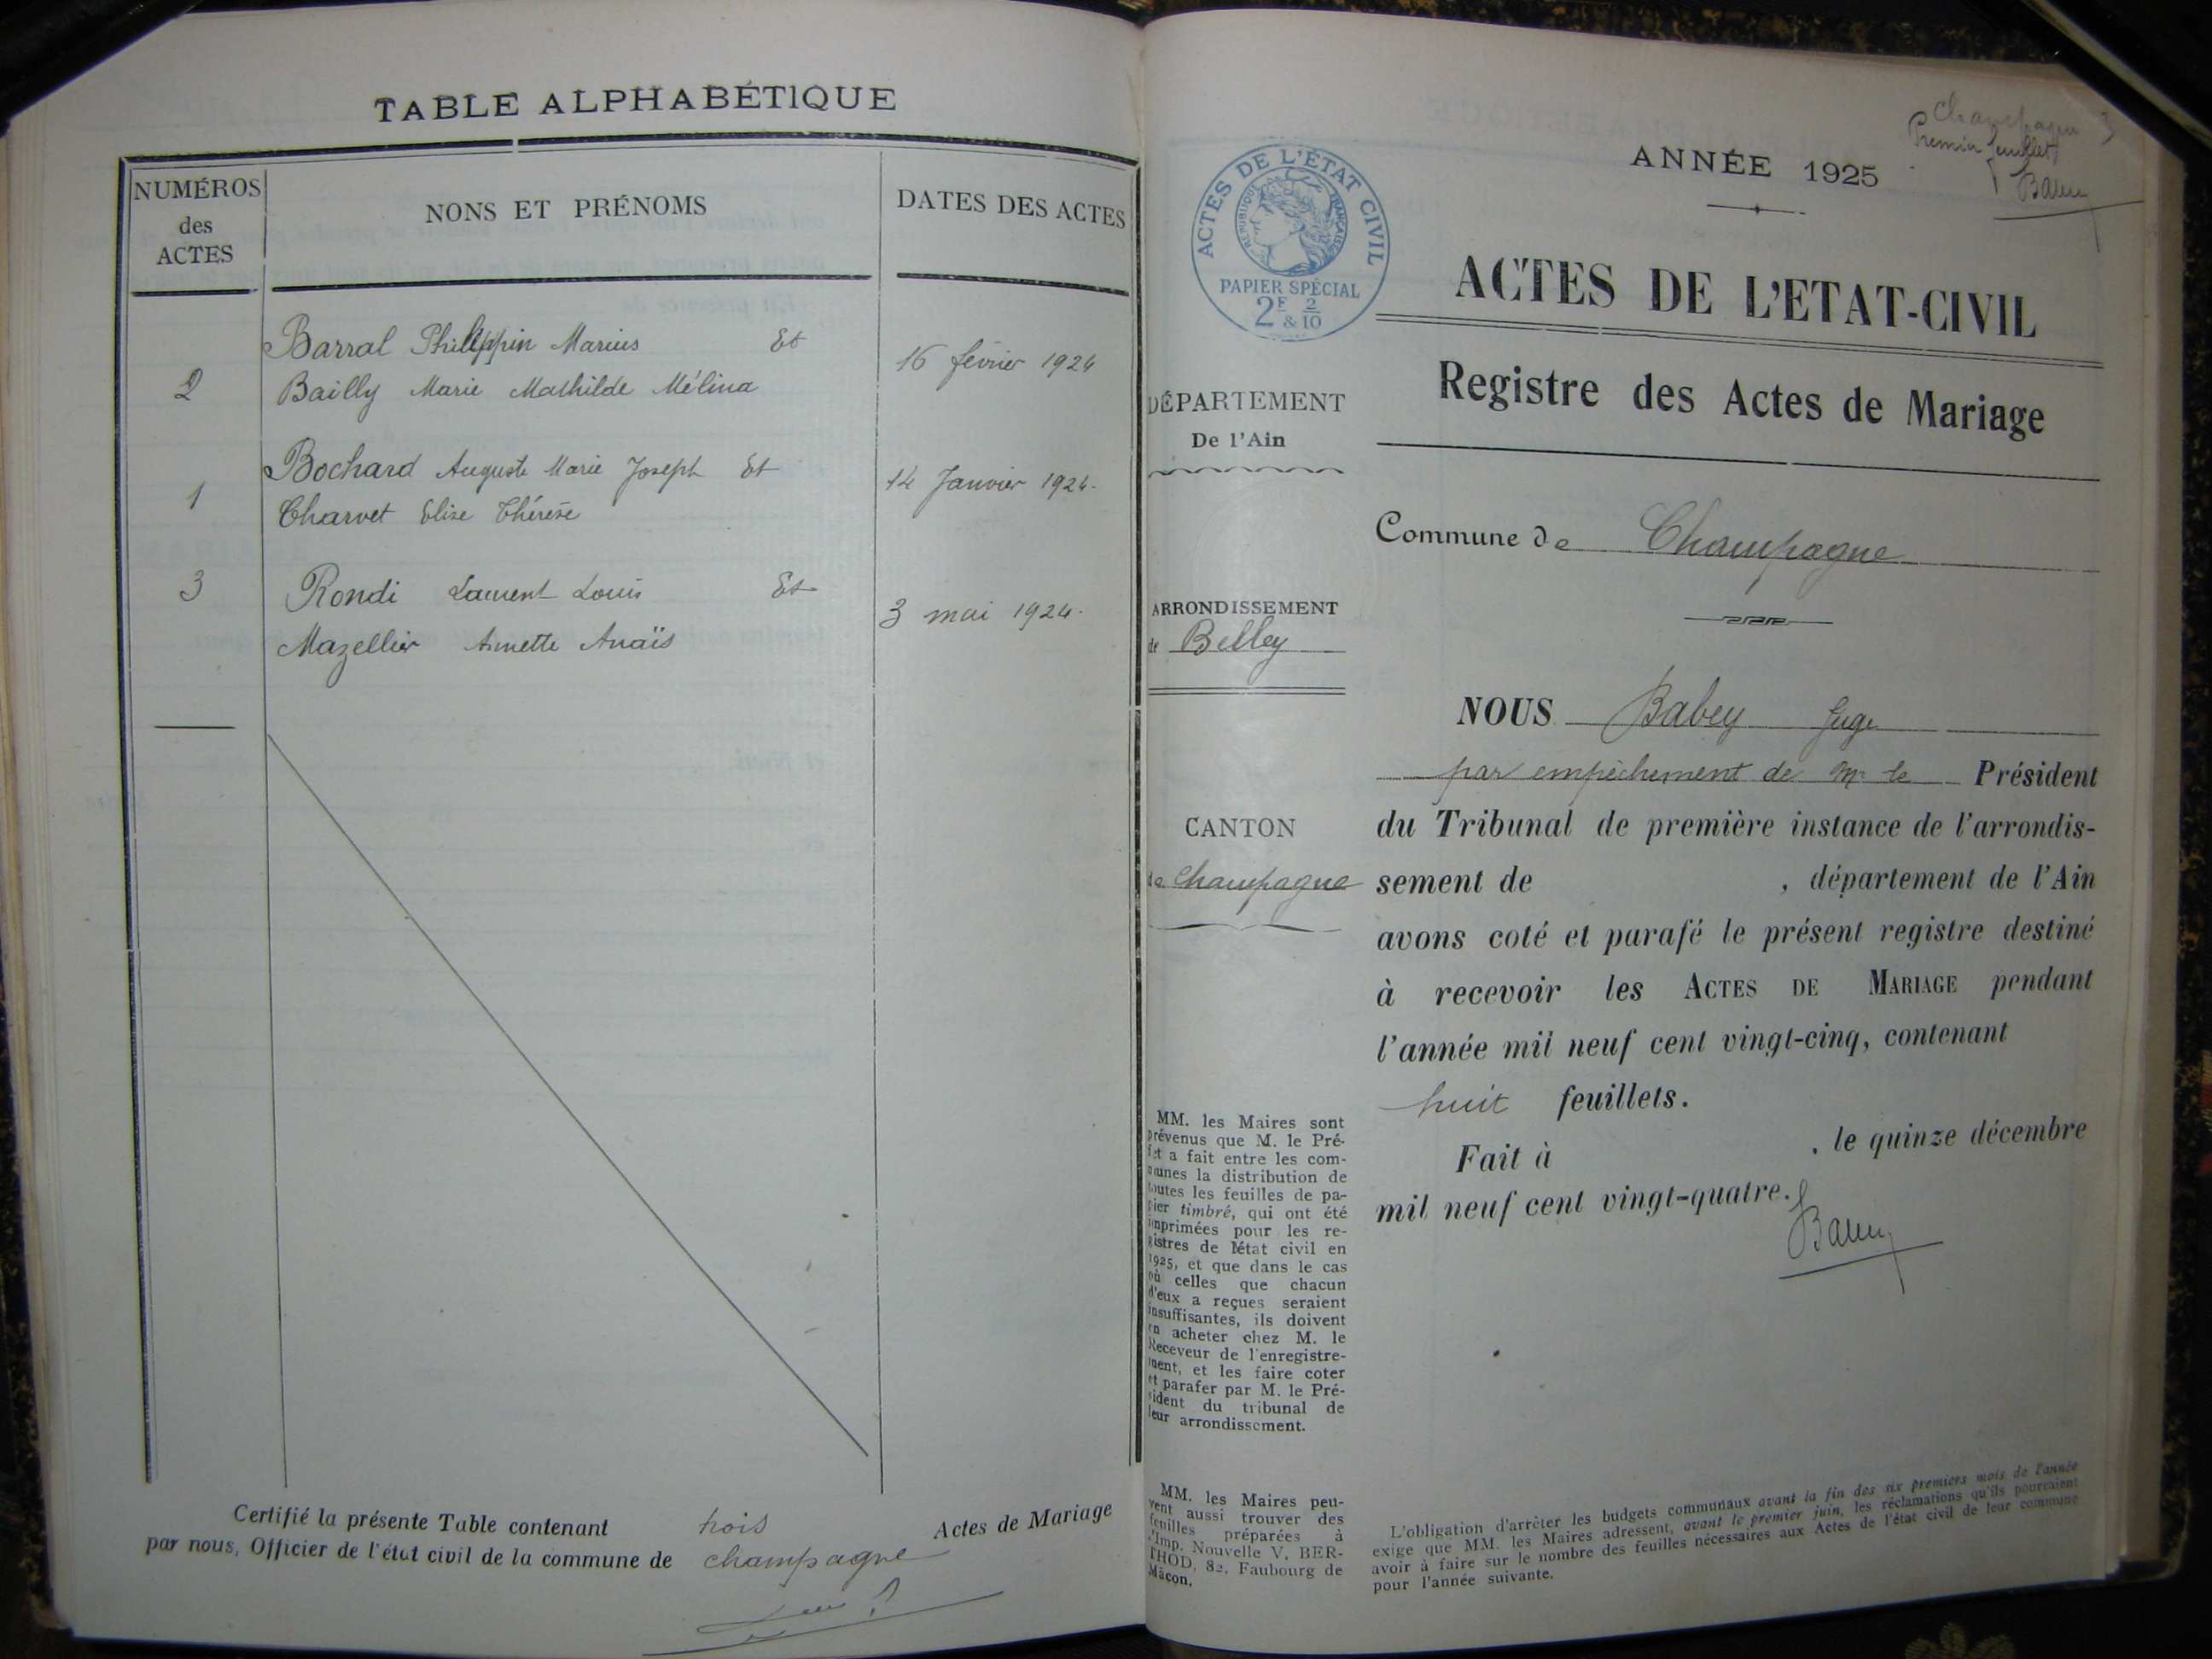 TABLE ALPHABÉTIQUE
NUMÉROS
des
ACTES
NONS ET PRÉNOMS
DATES DES ACTES
2
Barral Philippin Marius Et
Bailly Marie Mathilde Mélina
16 février 1924
1
Bochard Auguste Marie Joseph Et
Charvet Elise Thérèse
14 Janvier 1924.
3
Rondi Laurent Louis Et
Mazellier Annette Anaïs
3 mai 1924.
Certifié la présente Table contenant trois Actes de Mariage
par nous, Officier de l'état civil de la commune de champagne
Champagne
Premier feuillet
ANNÉE 1925
ACTES DE L'ÉTAT CIVIL
RÉPUBLIQUE FRANÇAISE
PAPIER SPÉCIAL
2F & 2/10
ACTES DE L'ETAT-CIVIL
Registre des Actes de Mariage
DÉPARTEMENT
De l'Ain
Commune de Champagne
ARRONDISSEMENT
de Belley
CANTON
de champagne
MM. les Maires sont
prévenus que M. le Pré-
fet a fait entre les com-
munes la distribution de
toutes les feuilles de pa-
pier timbré, qui ont été
imprimées pour les re-
gistres de l'état civil en
1925, et que dans le cas
où celles que chacun
d'eux a reçues seraient
insuffisantes, ils doivent
en acheter chez M. le
Receveur de l'enregistre-
ment, et les faire coter
et parafer par M. le Pré-
sident du tribunal de
leur arrondissement.
MM. les Maires peu-
vent aussi trouver des
feuilles préparées à
l'Imp. Nouvelle V. BER-
THOD, 82, Faubourg de
Mâcon.
NOUS Babey Juge
par empêchement de Mr le Président
du Tribunal de première instance de l'arrondis-
sement de , département de l'Ain
avons coté et parafé le présent registre destiné
à recevoir les ACTES DE MARIAGE pendant
l'année mil neuf cent vingt-cinq, contenant
huit feuillets.
Fait à , le quinze décembre
mil neuf cent vingt-quatre.
L'obligation d'arrêter les budgets communaux avant la fin des six premiers mois de l'année
exige que MM. les Maires adressent, avant le premier juin, les réclamations qu'ils pourraient
avoir à faire sur le nombre des feuilles nécessaires aux Actes de l'état civil de leur commune
pour l'année suivante.